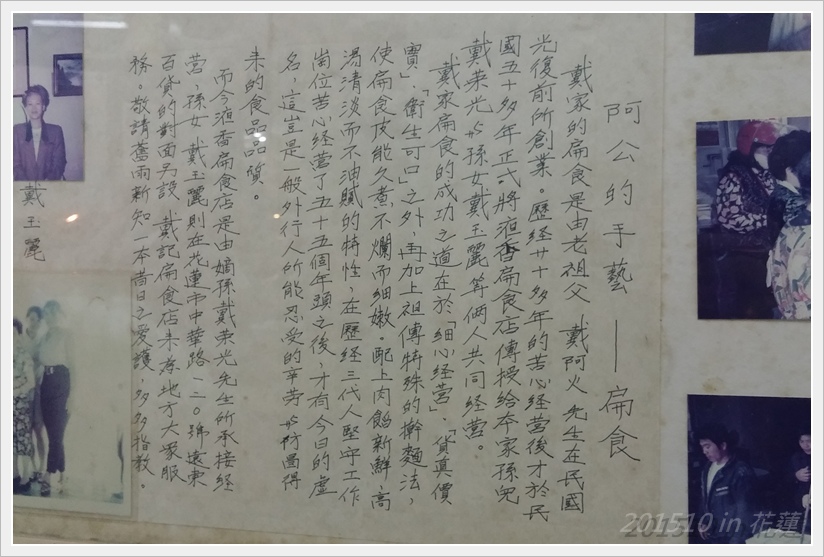 阿公的手藝—扁食
戴家的扁食是由老祖父 戴阿火先生在民國
光復前所創業。歷経廿十多年的苦心経营後才於民
國五十多年正式將液香扁食店傳授給本家孫兒
戴荣光與孫女戴玉麗等俩人共同経营。
戴家扁食的成功之道在於「細心経营」、「貨真價
實」、「衛生可口」之外，再加上祖傳特殊的擀麵法，
使扁食皮能久煮，不爛而細嫩。配上肉餡新鮮，高
湯清淡而不油膩的特性，在歷経三代人堅守工作
崗位苦心経营了五十五個年頭之後，才有今日的虛
名，這豈是一般外行人所能忍受的辛劳與防留得
来的食品品質。
而今液香扁食店是由嫡孫戴荣光先生所承接経
营，孫女戴玉麗則在花蓮市中華路一二0號遠東
百貨的對面另設 戴記扁食店来孝地方大眾服
務。敬請舊雨新知一本昔日之爱護，多多指教。
戴玉麗
201510 in 花蓮